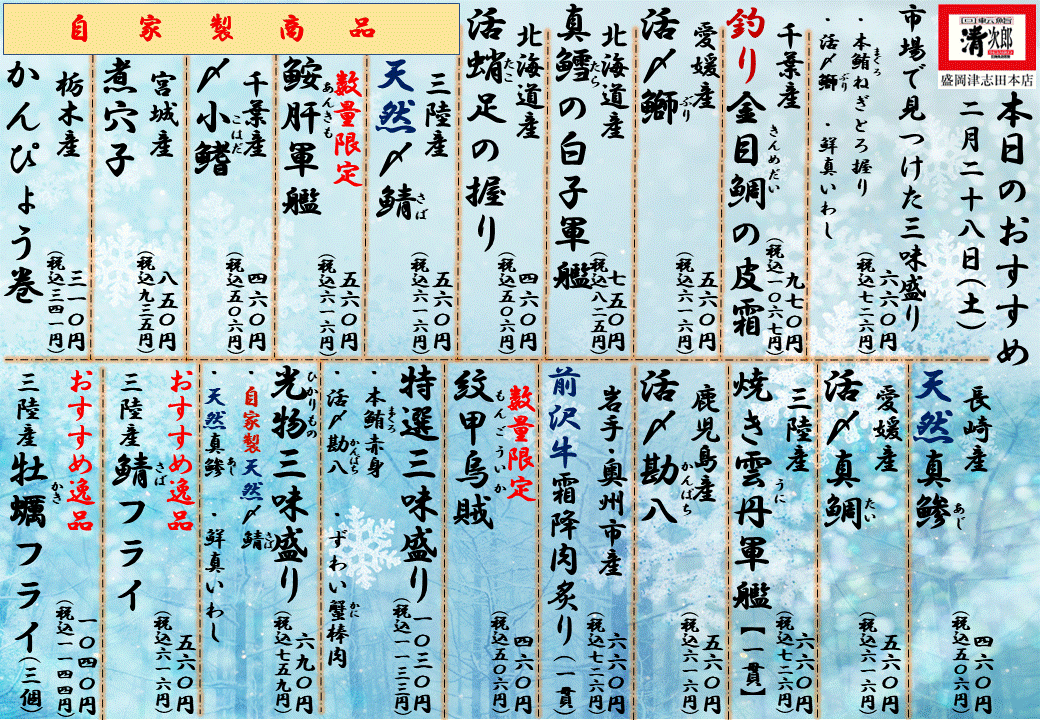 回転鮨
清次郎
盛岡津志田本店
本日のおすすめ
二月二十八日(土)
市場で見つけた三味盛り
・本鮪ねぎとろ握り
まぐろ
・活〆鰤
ぶり
・鮮真いわし
六六〇円
(税込七二六円)
千葉産
釣り金目鯛の皮霜
きんめだい
九七〇円
(税込一〇六七円)
愛媛産
活〆鰤
ぶり
五六〇円
(税込六一六円)
北海道産
真鱈の白子軍艦
たら
七五〇円
(税込八二五円)
北海道産
活蛸足の握り
たこ
四六〇円
(税込五〇六円)
自家製商品
三陸産
天然〆鯖
さば
五六〇円
(税込六一六円)
数量限定
鮟肝軍艦
あんきも
五六〇円
(税込六一六円)
千葉産
〆小鰭
こはだ
四六〇円
(税込五〇六円)
宮城産
煮穴子
八五〇円
(税込九三五円)
栃木産
かんぴょう巻
三一〇円
(税込三四一円)
長崎産
天然真鯵
あじ
四六〇円
(税込五〇六円)
愛媛産
活〆真鯛
たい
五六〇円
(税込六一六円)
三陸産
焼き雲丹軍艦【一貫】
うに
六六〇円
(税込七二六円)
鹿児島産
活〆勘八
かんぱち
五六〇円
(税込六一六円)
岩手・奥州市産
前沢牛霜降肉炙り(一貫)
六六〇円
(税込七二六円)
数量限定
紋甲烏賊
もんごういか
四六〇円
(税込五〇六円)
特選三味盛り
・本鮪赤身
まぐろ
・活〆勘八
かんぱち
・ずわい蟹棒肉
かに
一〇三〇円
(税込一一三三円)
光物三味盛り
ひかりもの
・自家製天然〆鯖
さば
・天然真鯵
あじ
・鮮真いわし
六九〇円
(税込七五九円)
おすすめ逸品
三陸産鯖フライ
さば
五六〇円
(税込六一六円)
おすすめ逸品
三陸産牡蠣フライ(三個)
かき
一〇四〇円
(税込一一四四円)